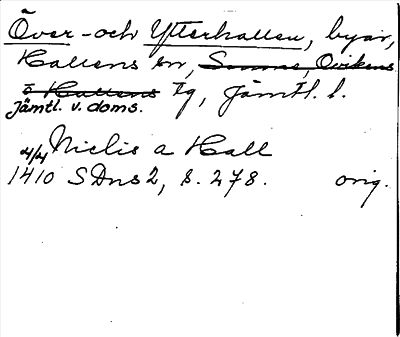 Över- och Ytterhallen, byar,
Hallens sn, Sunnes, Ovikens
o Hallens tg, Jämtl. l.
Jämtl. v. doms.
4/4 Niclis a Hall
1410 SDns 2, s. 278. orig.